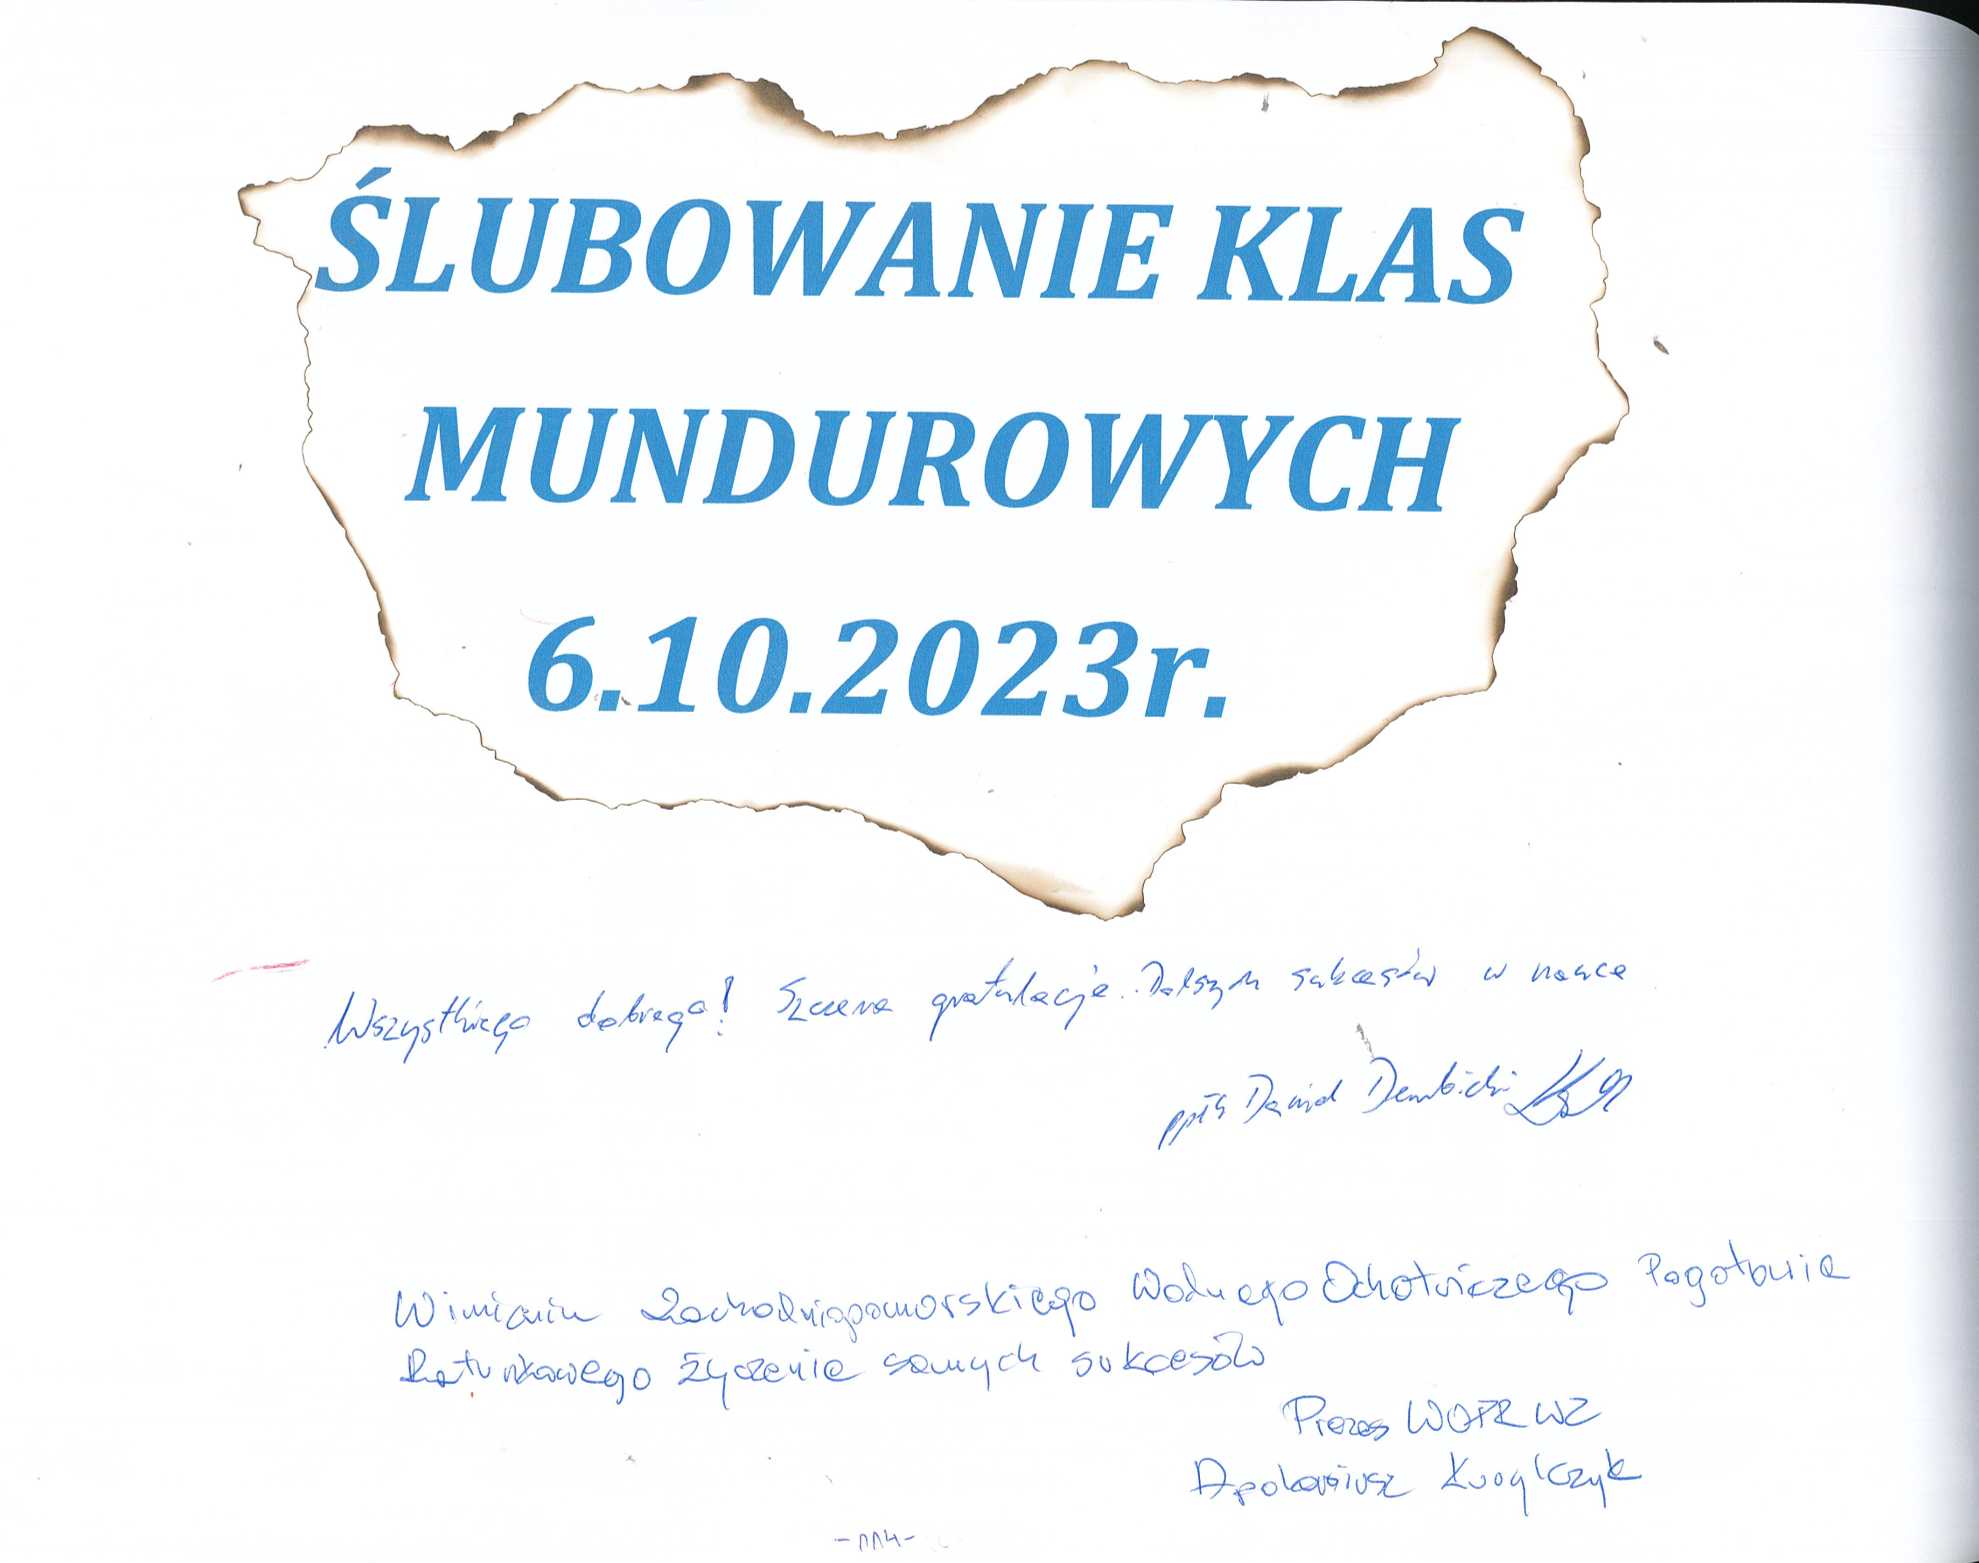 ŚLUBOWANIE KLAS
MUNDUROWYCH
6.10.2023r.
Wszystkiego dobrego! Szczere gratulacje. Dalszych sukcesów w nauce
ppłk Dawid Dembicki
W imieniu Zachodniopomorskiego Wodnego Ochotniczego Pogotowia
Ratunkowego życzenia samych sukcesów
Prezes WOPR WZ
-114-